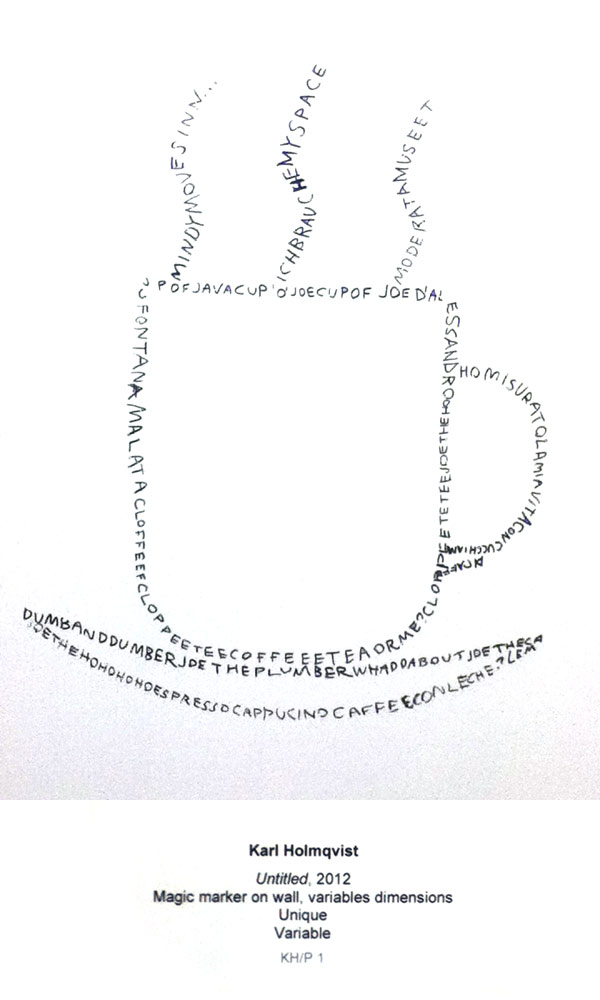 MINDYMOVESINN...
ICHBRAUCHEMYSPACE
MODERATAMUSEET
POFJAVACUP'O'JOECUPOF JOE D'AL
ESSANDRO
HOMISURATOLAMIAVITACONCUCCHIAINI
DICAFFE
FONTANAMALATACLOFFEEFCLOPPEETEECOFFEEEETEAORME?CLO
DUMBANDDUMBERJOETHEPLUMBERWHADDABOUTJOETHE
JOETHEHOHOHOHOESPRESSOCAPPUCINOCAFFEECONLECHE?
Karl Holmqvist
Untitled, 2012
Magic marker on wall, variables dimensions
Unique
Variable
KH/P 1